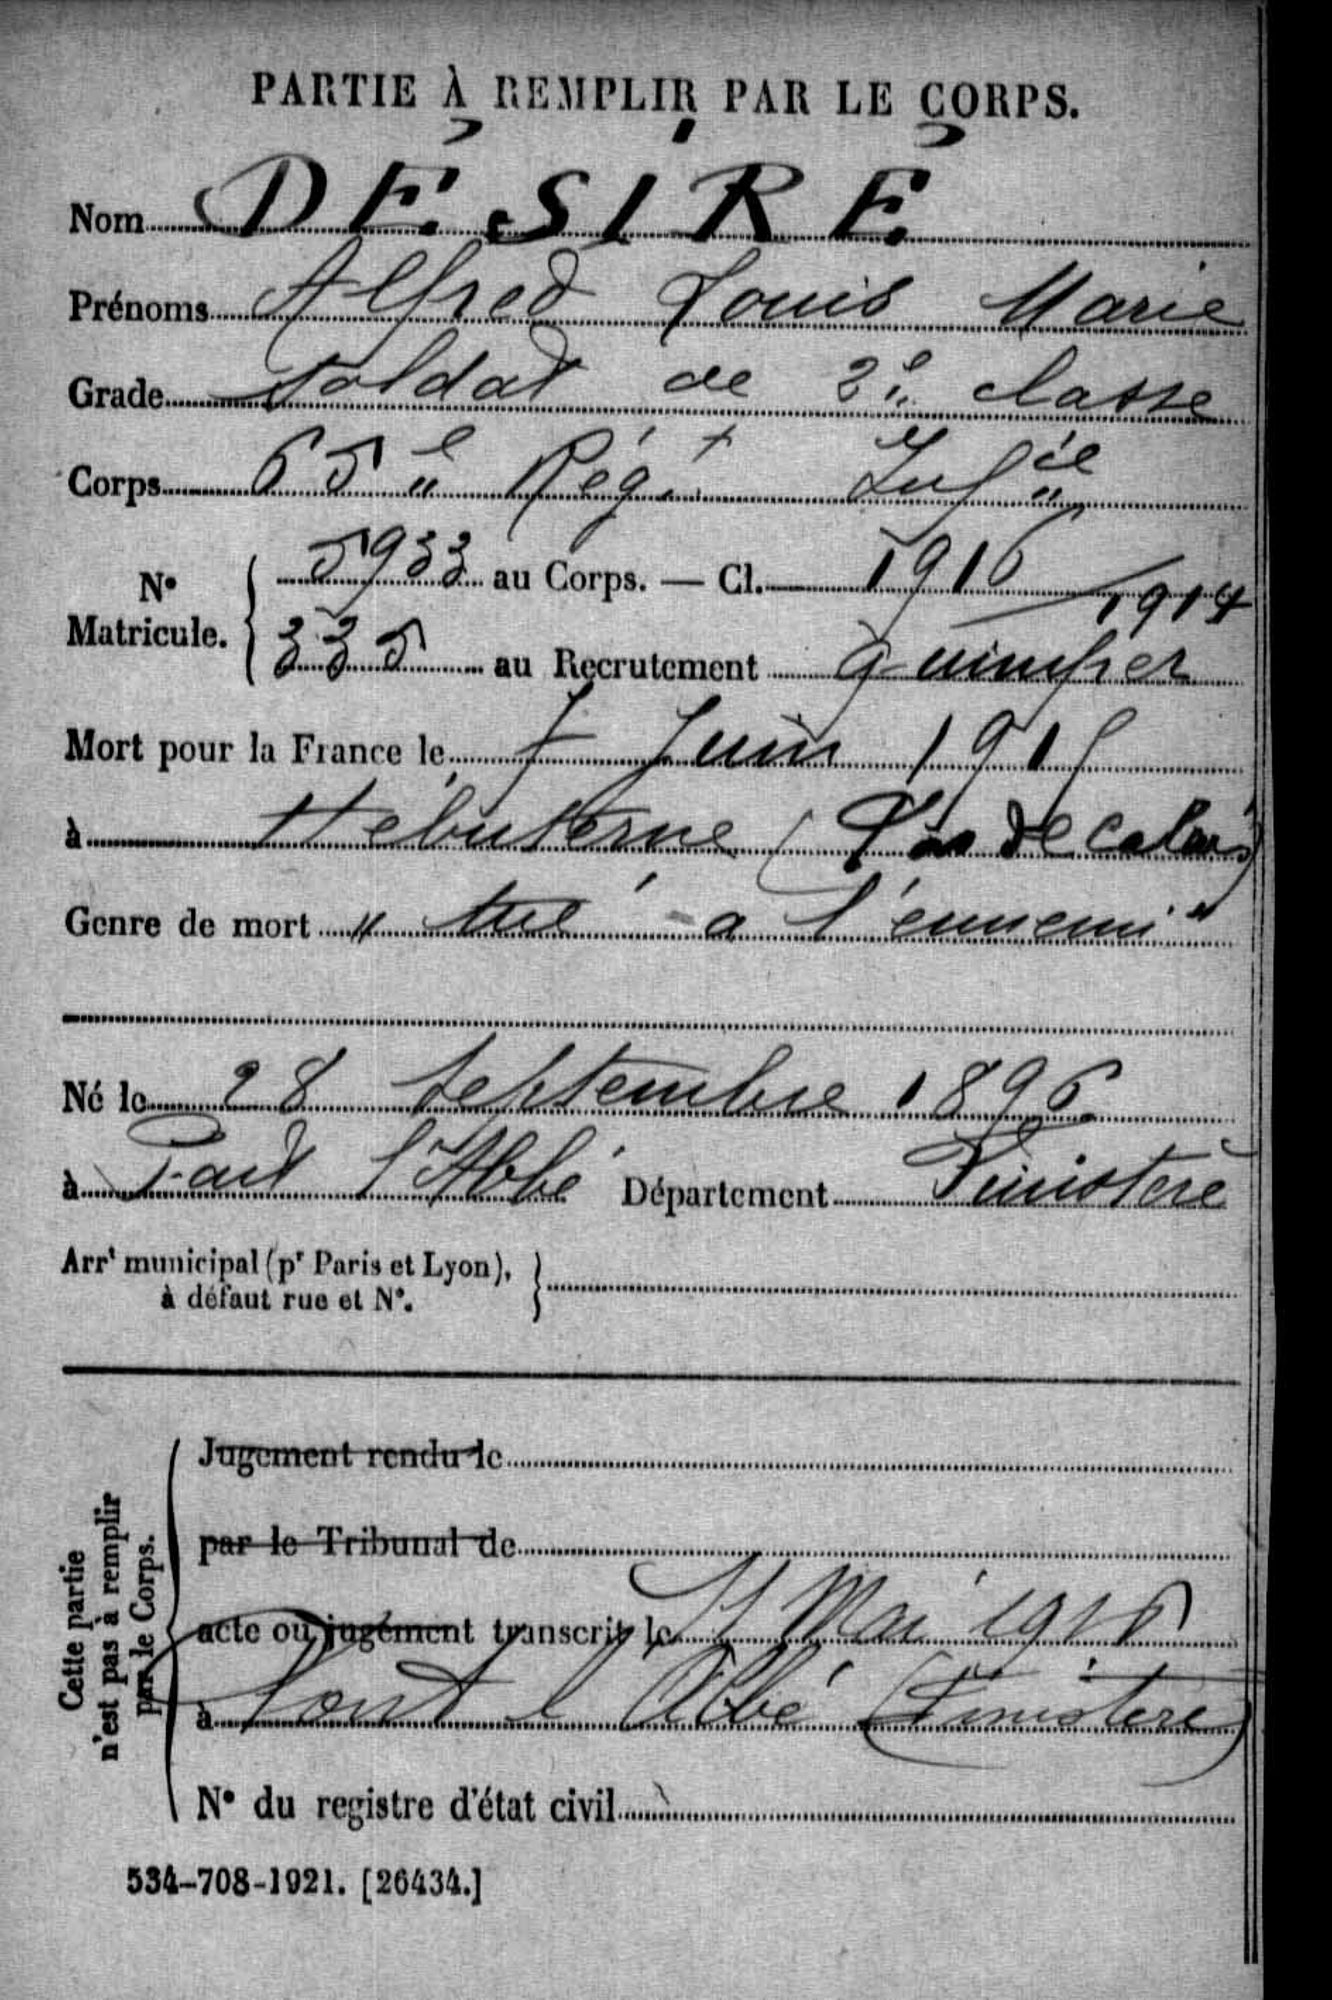 PARTIE À REMPLIR PAR LE CORPS.
Nom DÉSIRÉ
Prénoms Alfred Louis Marie
Grade Soldat de 2e classe
Corps 65e Régt Infie
No Matricule. { 5933 au Corps. — Cl. 1916/1914
335 au Recrutement Quimper
Mort pour la France le 7 Juin 1915
à Hébuterne (Pas de Calais)
Genre de mort "tué à l'ennemi"
Né le 28 Septembre 1896
à Pont l'Abbé Département Finistère
Arrt municipal (pr Paris et Lyon), }
à défaut rue et No.
Cette partie n'est pas à remplir par le Corps.
Jugement rendu le
par le Tribunal de
acte ou jugement transcrit le 11 Mai 1916
à Pont l'Abbé (Finistère)
No du registre d'état civil
534-708-1921. [26434.]